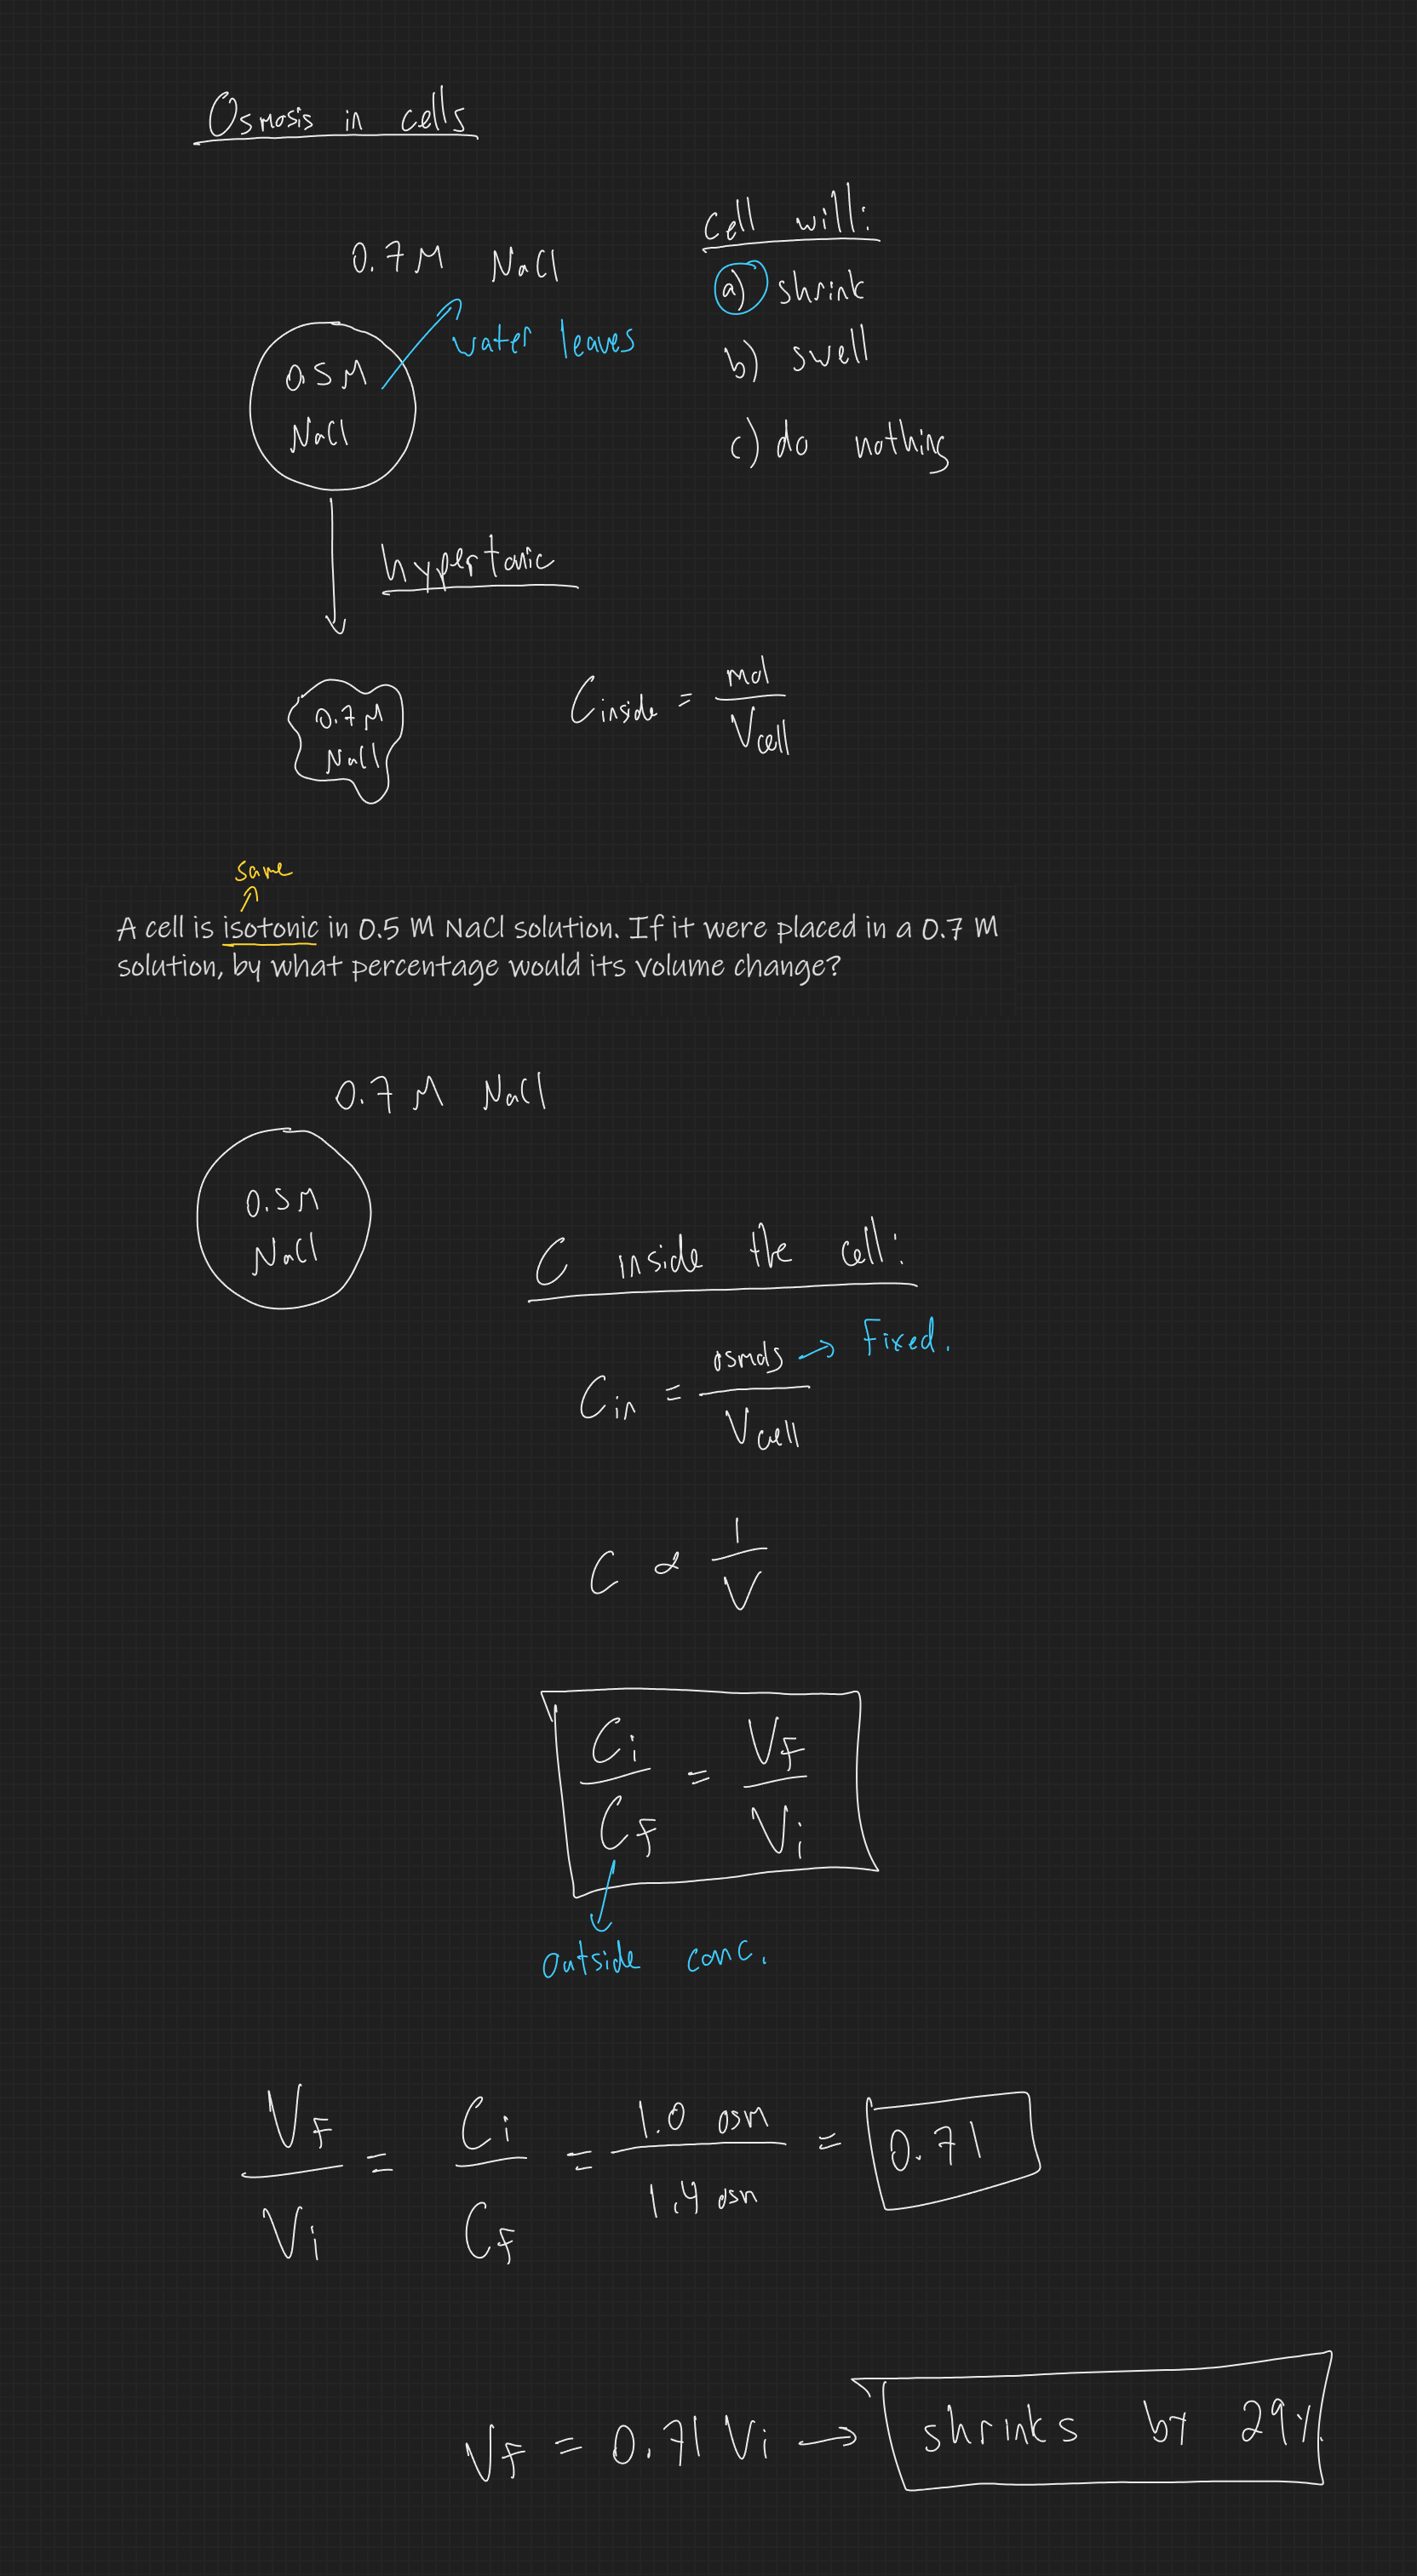 Osmosis in cells
0.7 M NaCl
water leaves
0.5 M
NaCl
cell will:
a) shrink
b) swell
c) do nothing
hypertonic
0.7 M
NaCl
C inside = mol / V cell
same
A cell is isotonic in 0.5 M NaCl solution. If it were placed in a 0.7 M
solution, by what percentage would its volume change?
0.7 M NaCl
0.5 M
NaCl
C inside the cell:
C in = osmols / V cell → Fixed.
C ∝ 1 / V
Ci / CF = VF / Vi
outside conc.
VF / Vi = Ci / CF = 1.0 osm / 1.4 osm = 0.71
VF = 0.71 Vi → shrinks by 29%